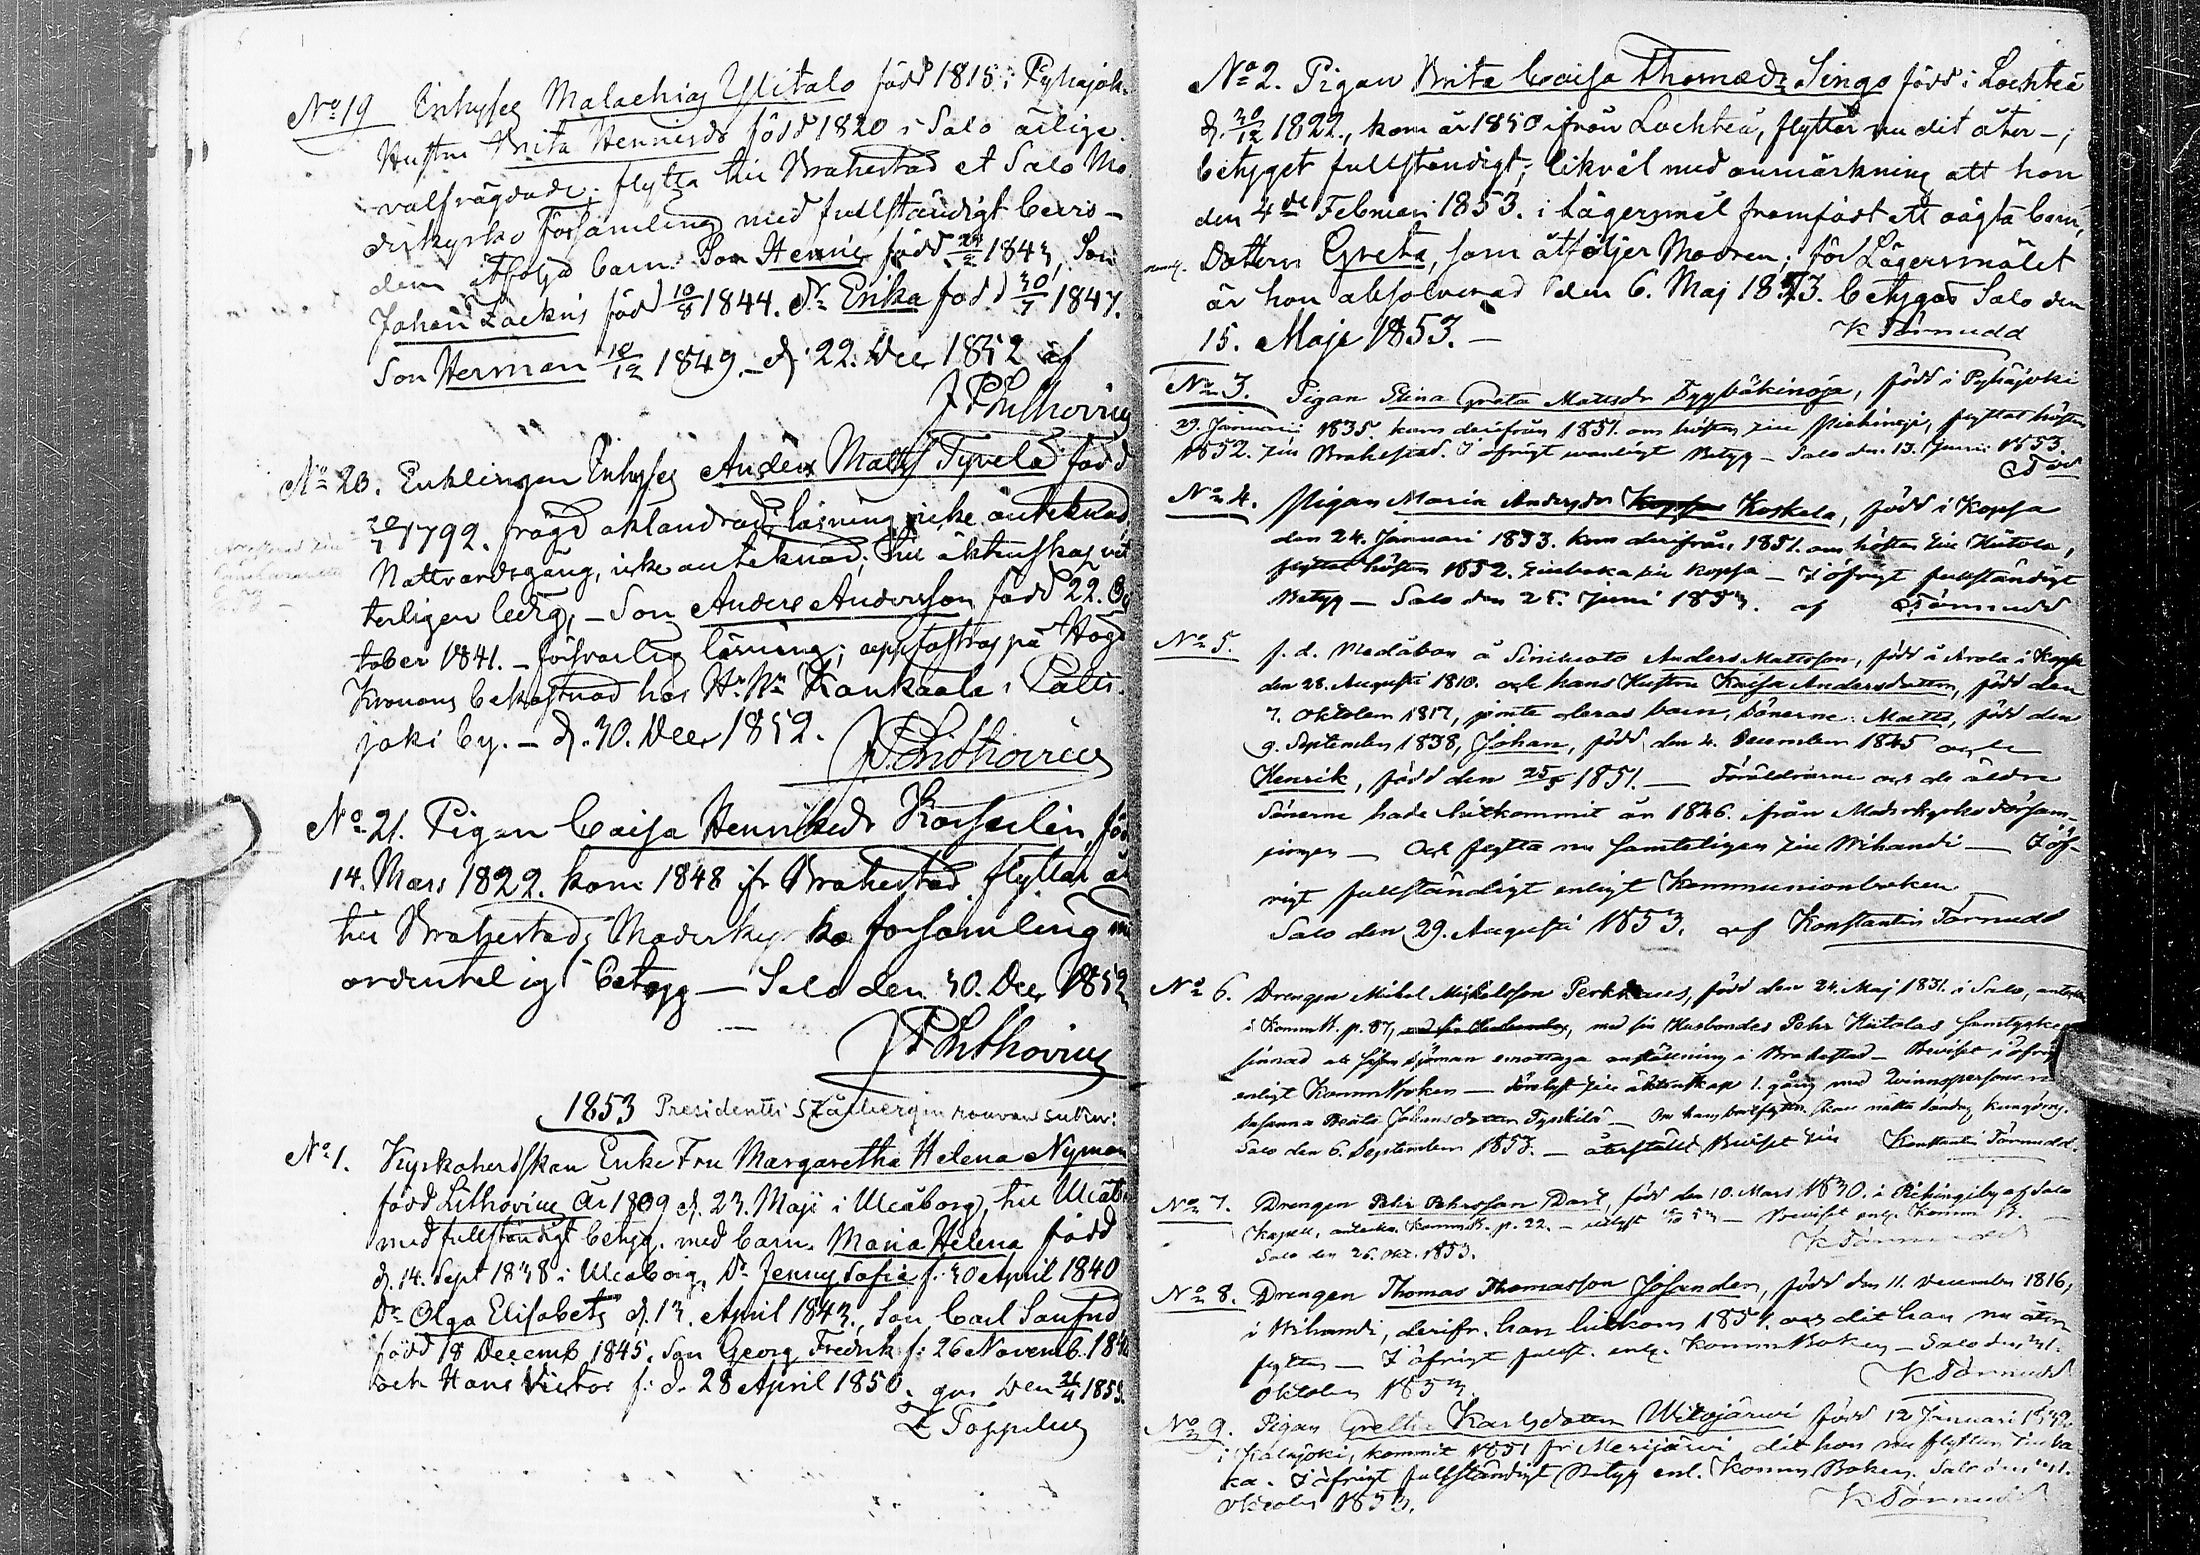 No 19 Inhyses Malachias Ylitalo född 1815 i Pyhajok.
Hustru Brita Hennicsdr född 1820 i Salo ärlige
välfrägdade; flytta till Brahestad et Salo Mo
derkyrko församling med fullständigt bevis –
dem åtfölja barn Son Henric född 1843, Son
Johan Zackris född 10/8 1844. Dr Erika född 30/7 1847.
Son Herman 10/12 1849. – d. 22. Decr 1852 af
J P Lithovius
No 20. Enklingen Inhyses Anders Matts Tyvelä född
1792. frägd oklandrad, läsning icke antecknad
Nattvardsgång, icke antecknad; till äktenskap vit
terligen ledig, – Son Anders Andersson född 22. Oc
tober 1841. – försvarlig läsning; uppfostras på Höga
Kronans bekostnad hos Kankaala i Patti
joki by. – d. 30. Decr 1852.
J P Lithovius
No 21. Pigan Caisa Henriksdr född
14. Mars 1822. kom 1848 ifr Brahestad flyttar
till Brahestads Moderkyrko församling
ordenteligt betyg — Salo den 30. Decr 1852
J P Lithovius
1853 Presidentti Ståhlbergin rouvan suku:
No 1. Kyrkoherdskan Enke Fru Margaretha Helena Nyman
född Lithovius År 1809 d. 23. Maji i Uleåborg, till Uleåb
med fullständigt betyg. med barn. Maria Helena född
d. 14. Sept 1838 i Uleåborg, Dr Jenny Sofia f. 30 April 1840
Dr Olga Elisabeth d. 13. April 1843., Son Carl Sanfrid
född 18 Decemb 1845. Son Georg Fredrik f: 26 Novemb. 184
och Hans Victor f: d. 28 April 1850. den 1853.
Z Toppelius
No 2. Pigan Brita Caisa Thomædr Singo född i Lochteå
d. 30/12 1822., kom år 1850 ifrån Lochteå, flyttar nu dit åter –;
betyget fullständigt; likväl med anmärkning att hon
den 4de Februari 1853. i Lägersmål framfödt ett oägta barn,
Dottern Greta, som åtföljer Modren; för Lägersmålet
är hon absolverad den 6. Maj 1853. betygas Salo den
15. Maji 1853. – K Törnudd
No 3. Pigan Stina Greta Mattsdr, född i Pyhäjoki
29. Januarii 1835. kom derifrån 1851. om hösten till Piehingi, flyttat hösten
1852. till Brahestad. I öfrigt vanligt Betyg – Salo den 13. Junii 1853.
No 4. Pigan Maria Andersdr Koskela, född i Kopsa
den 24. Januari 1833. kom derifrån 1851. om hösten till Hiitola,
flyttat hösten 1852. tillbaka till Kopsa – I öfrigt fullständigt
Betyg – Salo den 25. Juni 1853. af Törnudd
No 5. f. d. Medåbon å Sinikoto Anders Mattsson, född å Arola i Kopsa
den 28. Augusti 1810. och hans Hustru Kaisa Andersdotter, född den
7. Oktober 1817, jämte deras barn, Sönerne: Matts, född den
9. September 1838, Johan, född den 4. December 1845 och
Henrik, född den 25/5 1851. — Föräldrarne och de äldre
Sönerne hade hitkommit år 1846. från Moderkyrko Försam-
lingen — Och flytta nu samteligen till Wihandi — I öf-
rigt fullständigt enligt Kommunionboken —
Salo den 29. Augusti 1853. af Konstantin Törnudd
No 6. Drengen Mikel Mickelsson Perkkaus, född den 24. Maj 1831. i Salo,
i Kommb. p. 87, med sin Husbondes Pehr Hiitolas samtycke
sinnad att såsom Sjöman emottaga anställning i Brahestad – Beviset i öfrigt
enligt Kommboken — till äktenskap 1. gång med Qvinnspersonen
Susanna Beata Johansdotter Tyskilä –
Salo den 6. September 1853. – återstäld Beviset till Konstantin Törnudd.
No 7. Drengen Pehr Pehrsson Dart, född den 10. Mars 1830. i Piehingi by af Salo
Kapell, Kommb. p. 22. – – Beviset enl. Komm B.
Salo den 26. Okt. 1853. K Törnudd
No 8. Drengen Thomas Thomasson, född den 11. December 1816,
i Wihandi, derifr. han hitkom 1851. och dit han nu åter
flyttar – I öfrigt fullst. enl. KommBoken – Salo den 31.
Oktober 1853. K Törnudd
No 9. Pigan Greta Karlsdotter född 12 Januari
i Kalajoki, kommit 1851 fr Merijärvi, dit hon nu flyttar tillba
ka. I öfrigt fullständigt Betyg enl. Komm Boken. Salo den 31.
Oktober 1853. K Törnudd